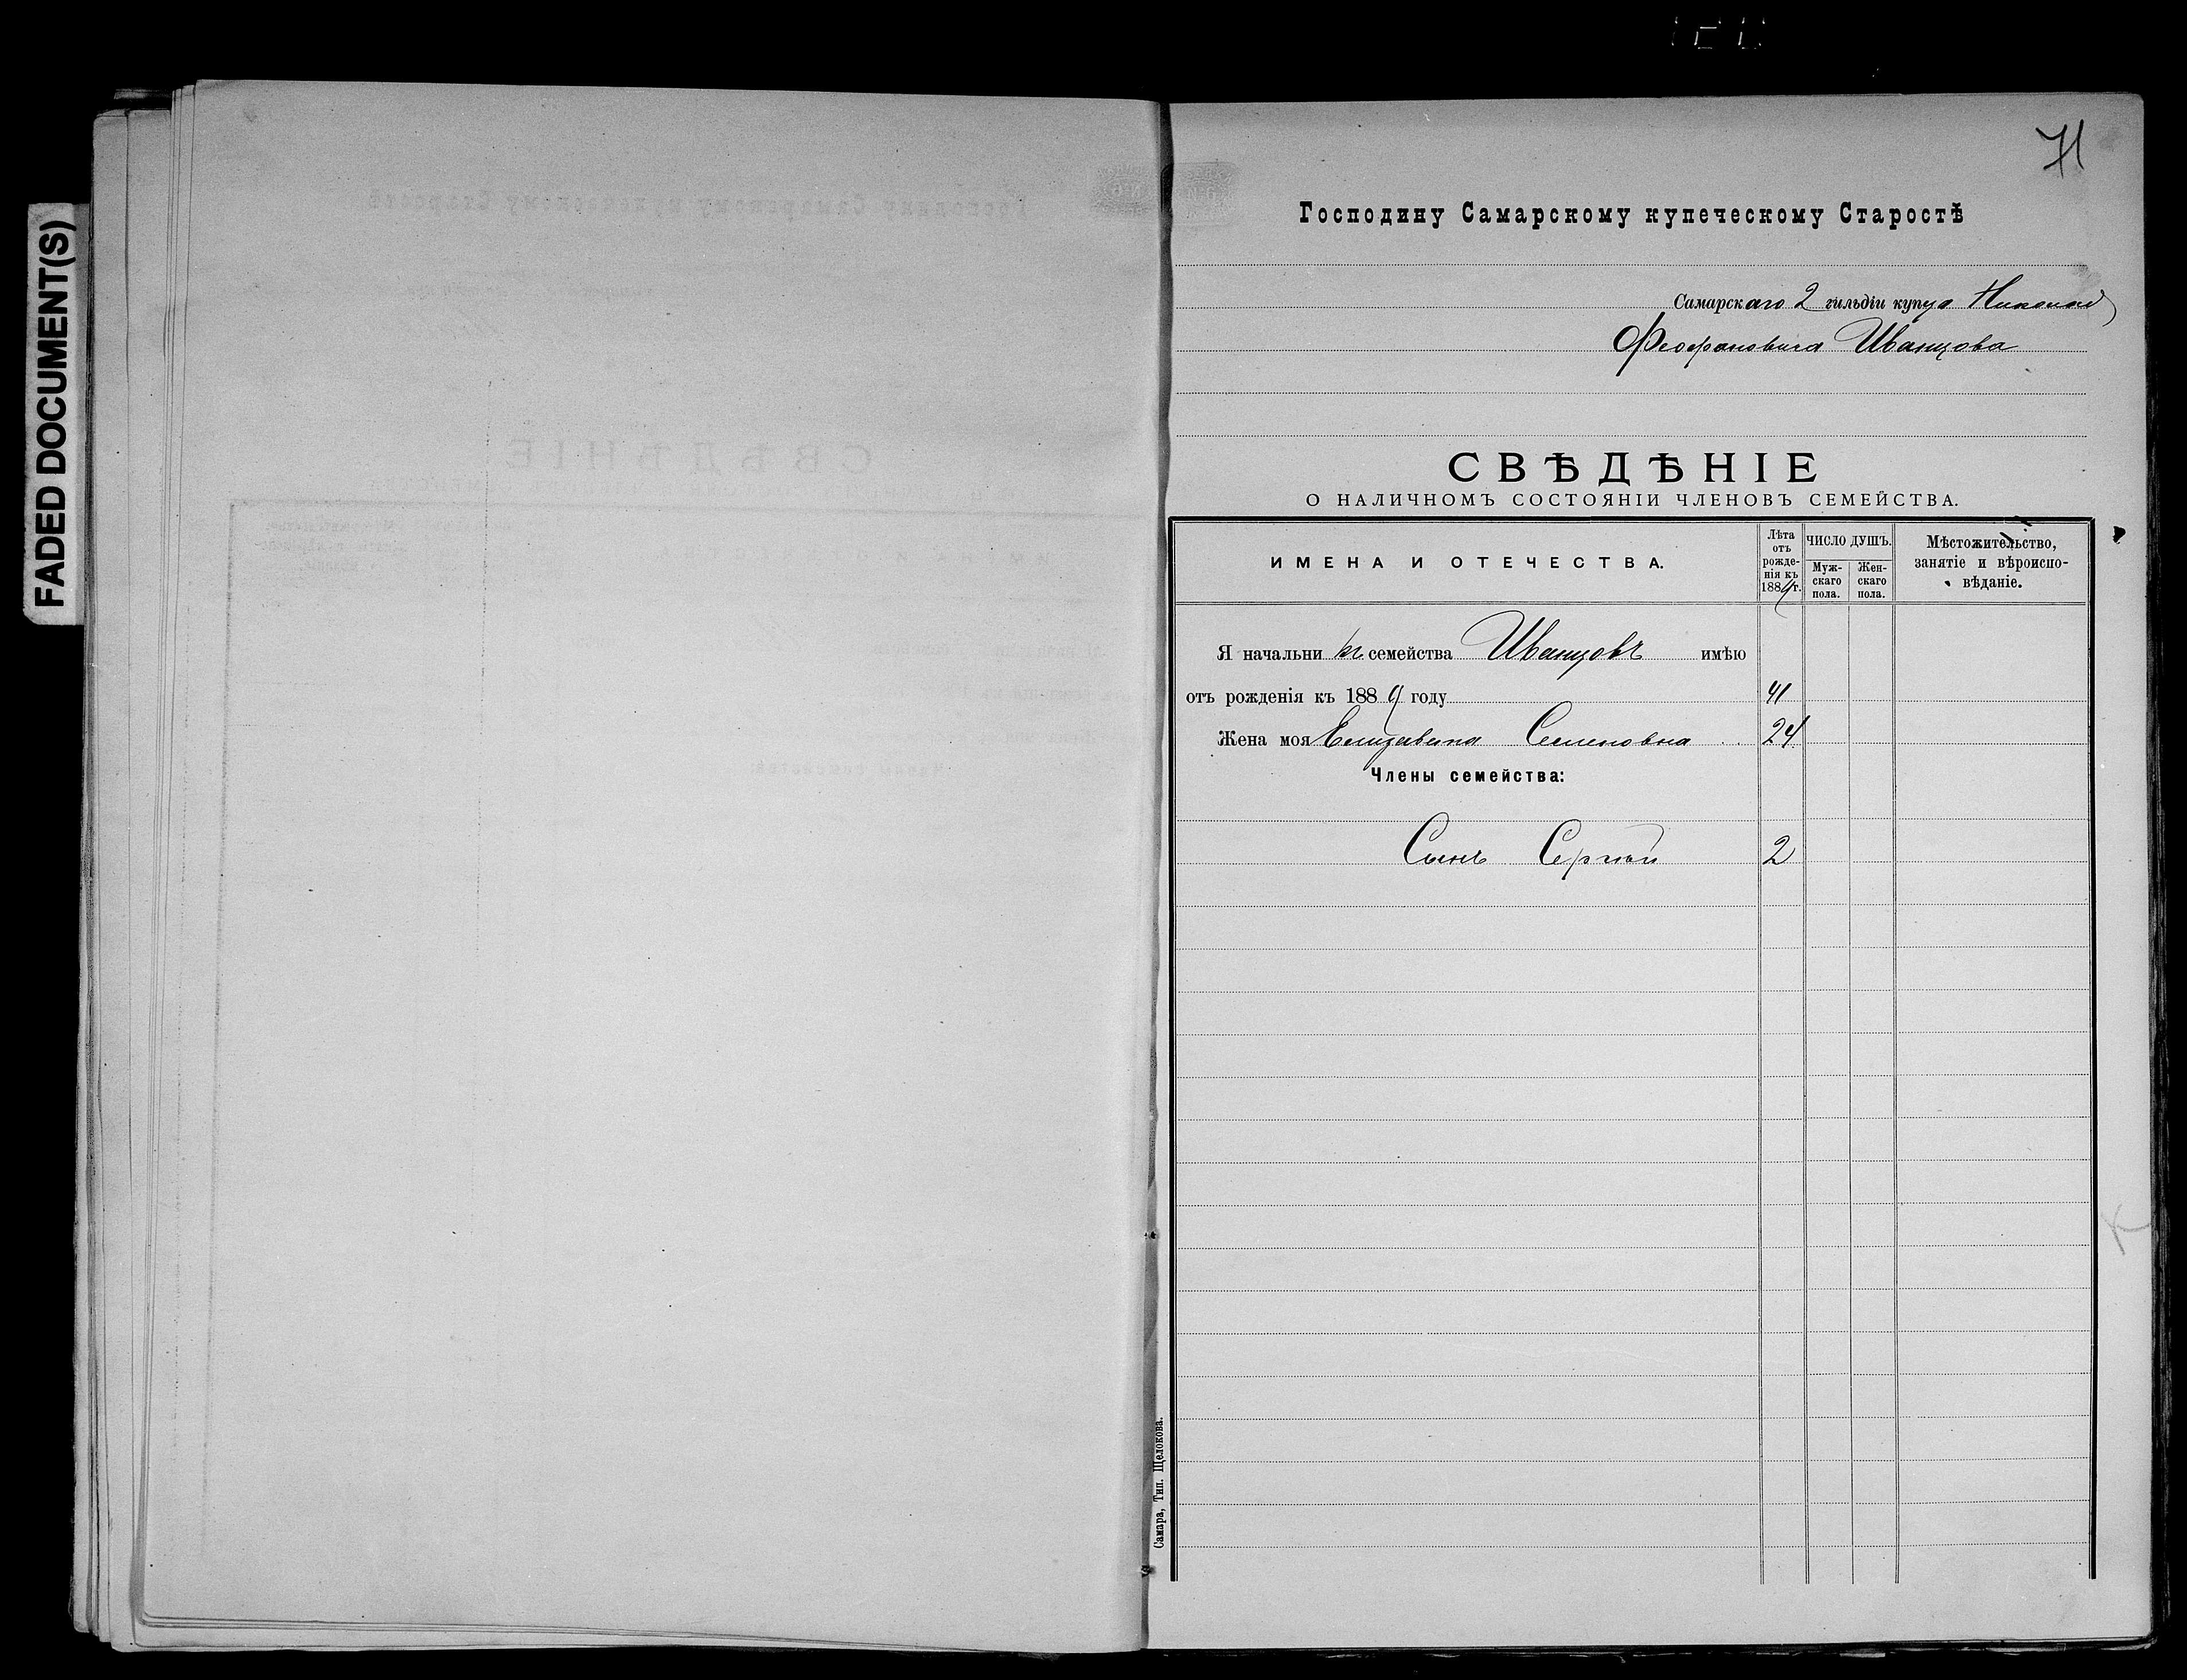 FADED DOCUMENT(S)
71
Господину Самарскому купеческому Старостѣ
Самарскаго 2 гильдіи купца Николая
Феофановича Иванцова
СВѢДѢНІЕ
О НАЛИЧНОМЪ СОСТОЯНІИ ЧЛЕНОВЪ СЕМЕЙСТВА.
ИМЕНА И ОТЕЧЕСТВА.
Лѣта
отъ
рожде-
нія къ
1889 г.
ЧИСЛО ДУШЪ.
Муж-
скаго
пола.
Жен-
скаго
пола.
Мѣстожительство,
занятіе и вѣроиспо-
вѣданіе.
Я начальникъ семейства Иванцовъ имѣю
отъ рожденія къ 1889 году 41
Жена моя Елизавета Семеновна 24
Члены семейства:
Сынъ Сергѣй 2
Самара, Тип. Щелокова.